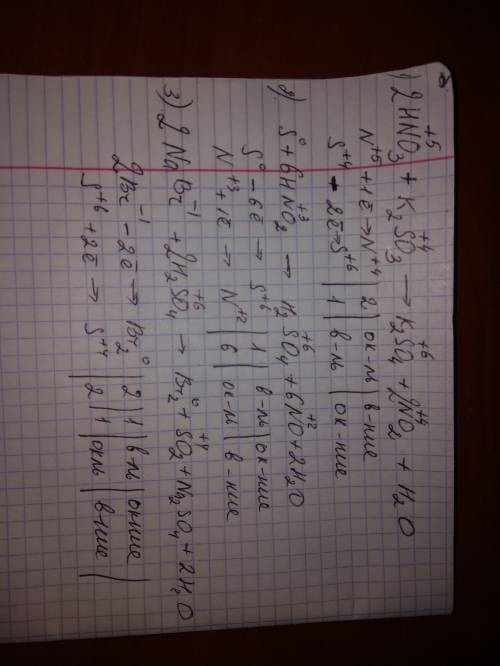 1) 2HNO₃⁺⁵ + K₂SO₃⁺⁴ → K₂SO₄⁺⁶ + 2NO₂⁺⁴ + H₂O
N⁺⁵ + 1ē → N⁺⁴ | 2 | ок-ль | в-ние
S⁺⁴ - 2ē → S⁺⁶ | 1 | в-ль | ок-ние
2) S⁰ + 6HNO₂⁺³ → H₂SO₄⁺⁶ + 6NO⁺² + 2H₂O
S⁰ - 6ē → S⁺⁶ | 1 | в-ль | ок-ние
N⁺³ + 1ē → N⁺² | 6 | ок-ль | в-ние
3) 2NaBr⁻¹ + 2H₂SO₄⁺⁶ → Br₂⁰ + SO₂⁺⁴ + Na₂SO₄ + 2H₂O
2Br⁻¹ - 2ē → Br₂⁰ | 2 | 1 | в-ль | ок-ние |
S⁺⁶ + 2ē → S⁺⁴ | 2 | 1 | ок-ль | в-ние |